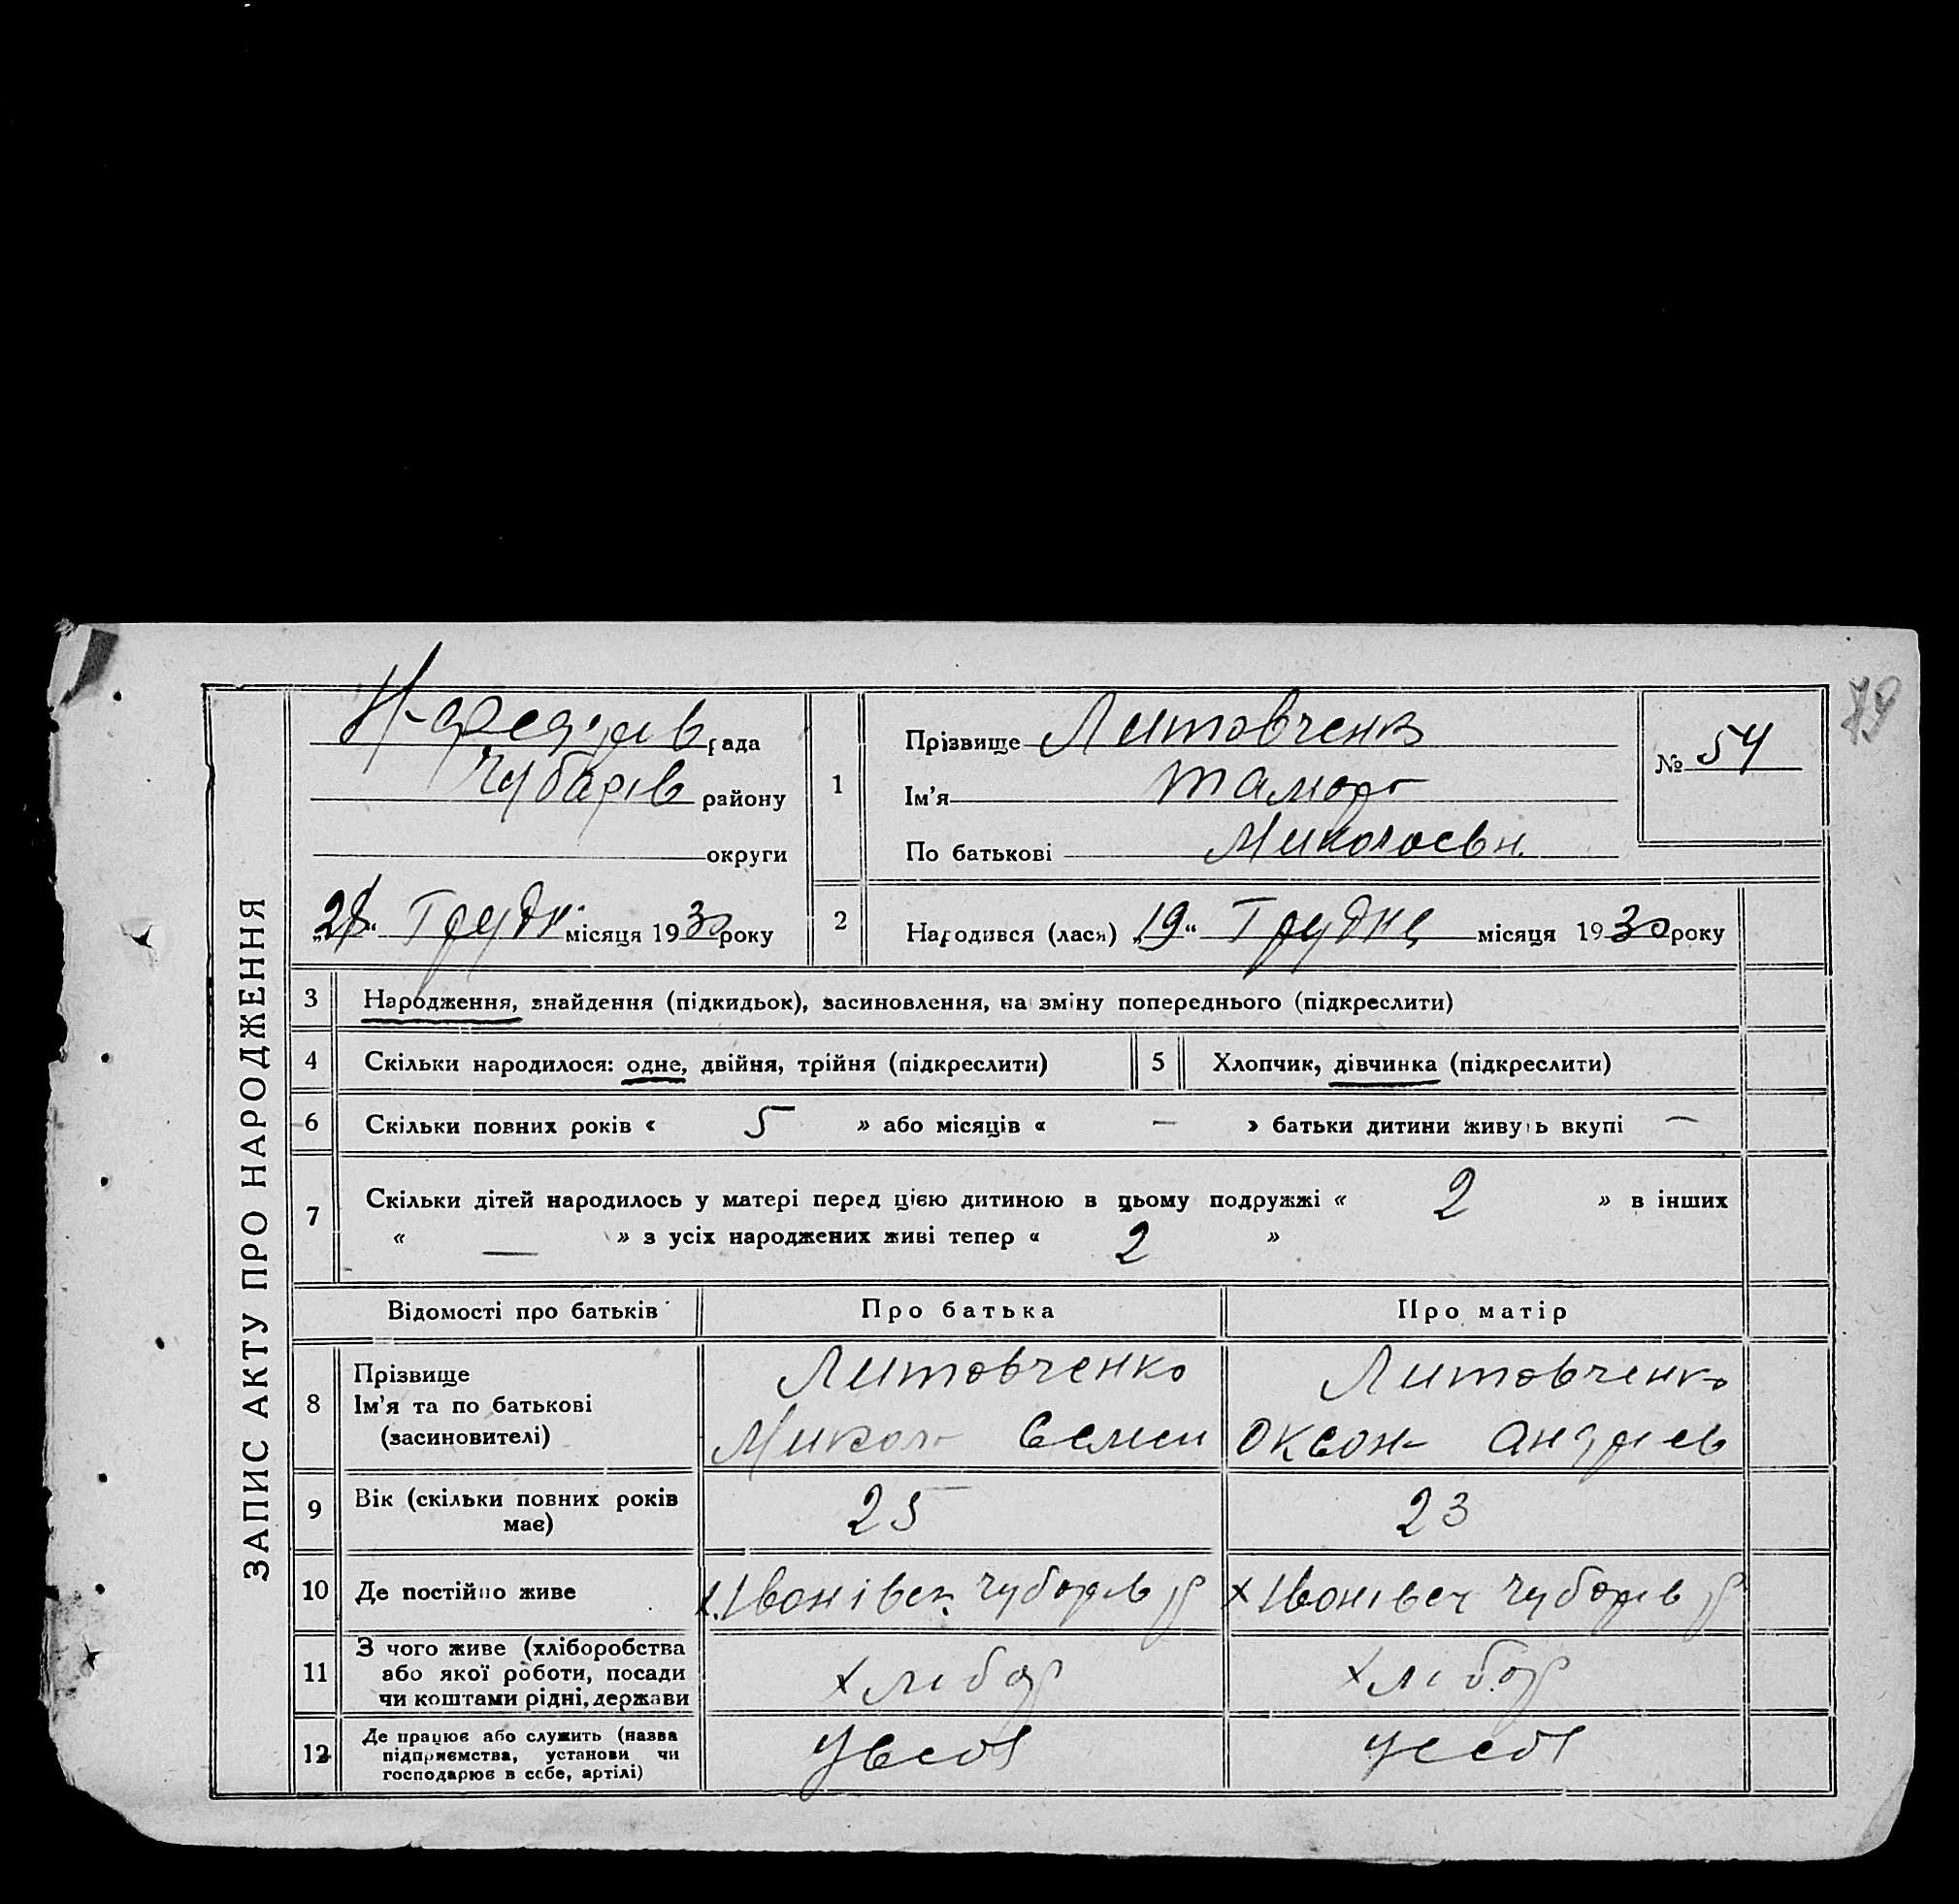 ЗАПИС АКТУ ПРО НАРОДЖЕННЯ
79
рада
Чубарів району
округи
"28" Грудн. місяця 1930 року
1
Прізвище Литовченко
Ім'я Тамара
По батькові Миколаевн.
№ 54
2 Народився (лася) "19" Грудня місяця 1930 року
3 Народження, знайдення (підкидьок), засиновлення, на зміну попереднього (підкреслити)
4 Скільки народилося: одне, двійня, трійня (підкреслити) 5 Хлопчик, дівчинка (підкреслити)
6 Скільки повних років « 5 » або місяців « — » батьки дитини живуть вкупі —
7 Скільки дітей народилось у матері перед цією дитиною в цьому подружжі « 2 » в інших
« — » з усіх народжених живі тепер « 2 »
Відомості про батьків Про батька Про матір
8 Прізвище Литовченко Литовченко
Ім'я та по батькові
(засиновителі) Микола Семен Оксан Андрієв
9 Вік (скільки повних років
має) 25 23
10 Де постійно живе х. Іванівск. Чубарів р х Іванівск Чубарів р
11 З чого живе (хліборобства
або якої роботи, посади
чи коштами рідні, держави хлібор хлібор
12 Де працює або служить (назва
підприємства, установи чи
господарює в себе, артілі) У себе У себе